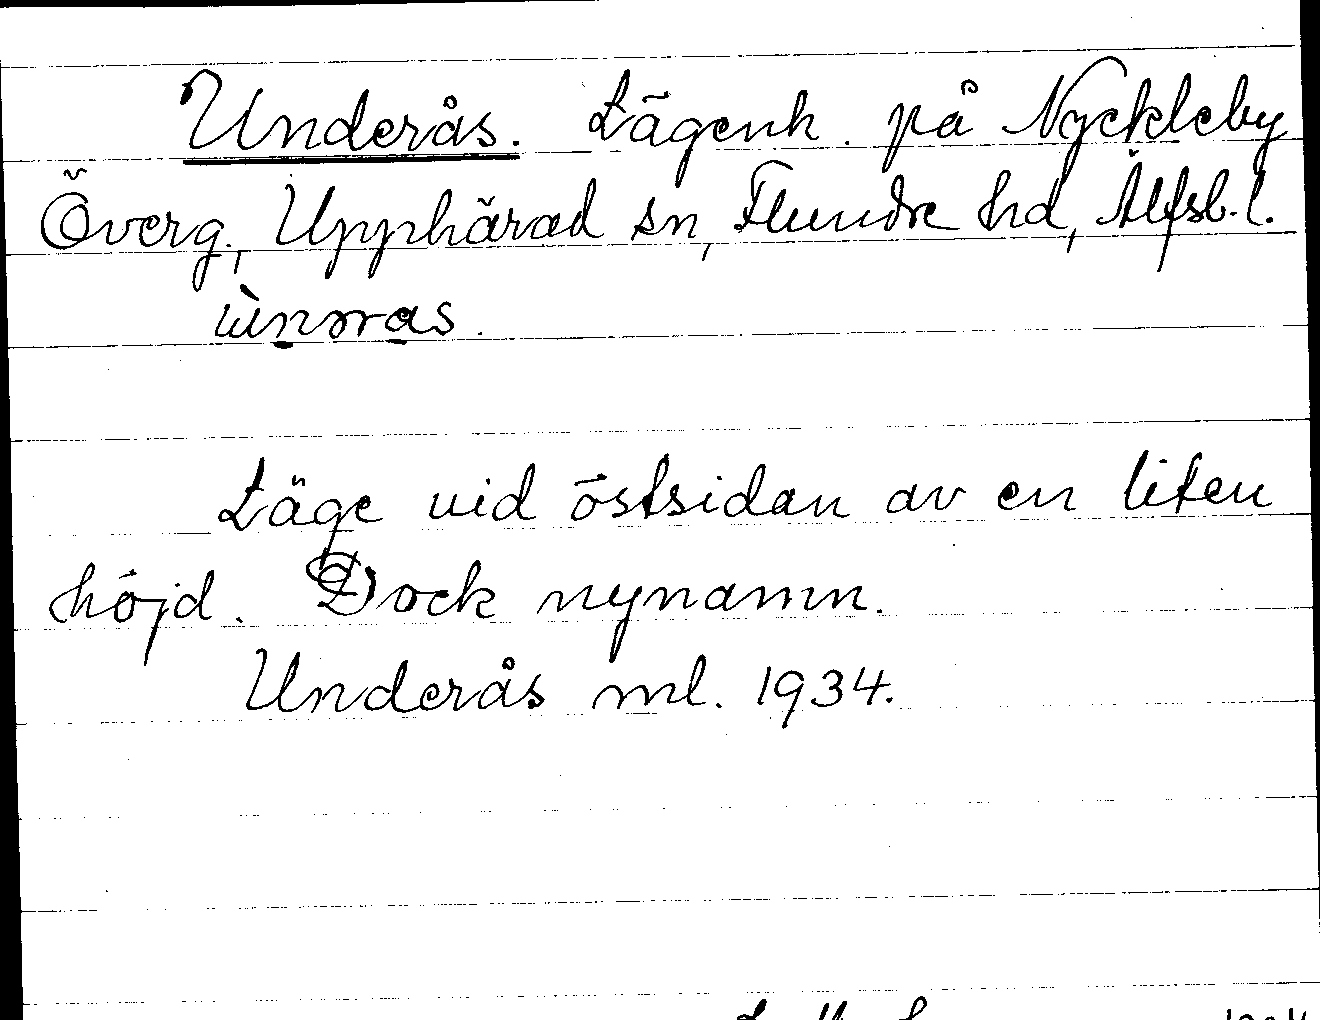 Underås. Lägenh. på Nyckleby
Överg., Upphärad sn, Flundre hd, Älfsb. l.
Läge vid östsidan av en liten
höjd. Dock nynamn.
Underås ml. 1934.